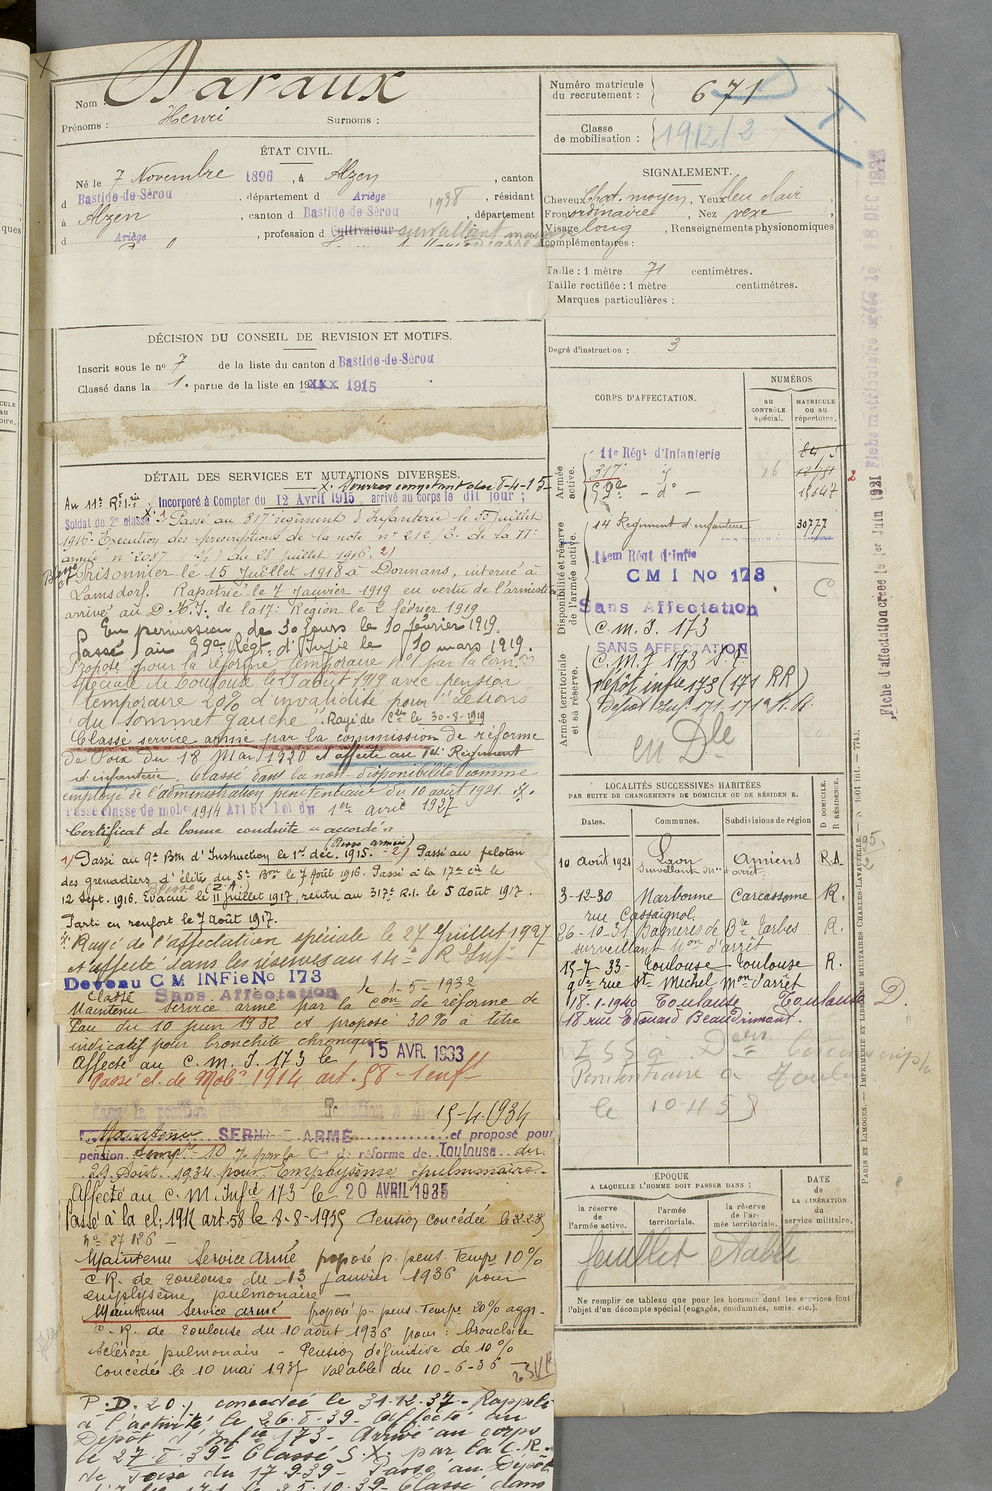 Nom : Daraux
Prénoms : Henri Surnoms :
ÉTAT CIVIL.
Né le 7 Novembre 1896, à Alzen, canton
d Bastide-de-Sérou, département d Ariège, résidant
à Alzen, canton d Bastide-de-Sérou, département
d Ariège, profession d Cultivateur surveillant
DÉCISION DU CONSEIL DE REVISION ET MOTIFS.
Inscrit sous le nº 7 de la liste du canton d Bastide-de-Sérou
Classé dans la 1e partie de la liste en 19 1915
DÉTAIL DES SERVICES ET MUTATIONS DIVERSES.
Incorporé à Compter du 12 Avril 1915, arrivé au corps le dit jour ;
Soldat de 2e classe Passé au 317e régiment d'Infanterie le juillet
1916. Exécution des prescriptions de la note nº 212/6. de la
armée nº 2087 du 28 juillet 1916. 2)
Prisonnier le 15 Juillet 1918 à Dormans, interné à
Lamsdorf. Rapatrié le 7 Janvier 1919 en vertu de l'armistice
arrivé au D. de la 17e Région le 2 février 1919
En permission de 30 jours le 10 février 1919.
Passé au 59e Régt d'Infie le 10 mars 1919.
Proposé pour la réforme temporaire nº1 par la Com.on
spéciale de Toulouse le 27 août 1919 avec pension
temporaire 20% d'invalidité pour "Lésions
du sommet gauche". Rayé du le 30-8-1919
Classé service armé par la commission de réforme
de Foix du 18 Mai 1920 et affecté au 14e Régiment
d'infanterie. Classé dans la non-disponibilité comme
employé de l'administration pénitentiaire du 10 août 1921.
Passé classe de mobon 1914 Art 58 Loi du 1er avril 1927
Certificat de bonne conduite "accordé"
1) Passé au 9e Btn d'Instruction le 1er dec. 1915. 2) Passé au peloton
des grenadiers d'élite du 5e Bon le 7 Août 1916. Passé à la 17e cie le
12 Sept. 1916. Evacué le 11 juillet 1917, rentré au 317e R.I. le 5 août 1917.
Parti en renfort le 7 août 1917.
Rayé de l'affectation spéciale le 27 Juillet 1927
et affecté dans les réserves au 14e R. Inf.
Devenu CM INFie No 173 le 1-5-1932
Sans Affectation
Classé
Maintenu service armé par la Con de réforme de
Pau du 10 juin 1932 et proposé 30% à titre
indicatif pour bronchite chronique
Affecté au C. M. I. 173 le 15 AVR. 1933
Passé cl. de Mobon 1914 art. 58
15-4-1934
Maintenu SERVICE ARMÉ et proposé pour
pension temp. 10 % par la Con de réforme de Toulouse du
Août 1934 pour Emphysème pulmonaire
Affecté au C. M. Infie 173 le 20 AVRIL 1935
Passé à la cl. 1912 art. 58 le 8-8-1935 Pension concédée le
Maintenu Service armé proposé p. pens. Tempre 10%
C R. de Toulouse du 13 janvier 1936 pour
emphysème pulmonaire
Maintenu Service armé proposé p. pens. Tempre 20% aggr.
C. R. de Toulouse du 10 août 1936 pour : bronchite
sclérose pulmonaire - Pension définitive de 10%
Concédée le 10 mai 1937 Valable du 10-6-36
P.D. 20% concédée le 31.12.37. Rappelé
à l'activité le 26.8.39. Affecté au
Dépôt d'Infie 173. Arrivé au corps
le 27.8.39. Classé S.X. par la C.R.
de Foix du 17.9.39. Passé au Dépôt
d'Inf 171 le 25.10.39. Classé dans
Numéro matricule
du recrutement : 671
Classe
de mobilisation : 1912
SIGNALEMENT.
Cheveux chat. moyen, Yeux bleu clair
Front ordinaire, Nez vexe,
Visage long, Renseignements physionomiques
complémentaires :
Taille : 1 mètre 71 centimètres.
Taille rectifiée : 1 mètre centimètres.
Marques particulières :
Degré d'instruction : 3
CORPS D'AFFECTATION.
NUMÉROS
AU CONTRÔLE spécial.
MATRICULE ou au répertoire.
Armée active.
11e Régt d'Infanterie
317e
59e - do -
16
15647
Disponibilité et réserve de l'armée active.
14 Régiment d'infanterie 30777
Régt d'Infie
CMI No 173
Sans Affectation
C. M. I. 173
SANS AFFECTATION
Armée territoriale et sa réserve.
C. M. I 173 S. A
dépôt infie 173 (171 RR)
en Dle
LOCALITÉS SUCCESSIVES HABITÉES
PAR SUITE DE CHANGEMENTS DE DOMICILE OU DE RÉSIDENCE.
Dates. Communes. Subdivisions de région D DOMICILE. R RÉSIDENCE.
10 Août 1921 Laon Amiens R.
Surveillant Mon d'arrêt.
3-12-30 Narbonne Carcassonne R.
rue Cassaignol
26-10-31 Bagnères de Bre Tarbes R.
surveillant Mon d'arrêt
15-7-33 Toulouse Toulouse R.
gde rue St Michel Mon d'arrêt
18-1-1940 Toulouse Toulouse D.
18 rue Edouard Beaudrimont.
Pénitentiaire à Toulouse
le 10-4-5
ÉPOQUE
A LAQUELLE L'HOMME DOIT PASSER DANS :
la réserve de l'armée active.
l'armée territoriale.
la réserve de l'armée territoriale.
DATE de LA LIBÉRATION du service militaire.
feuillet établi
Ne remplir ce tableau que pour les hommes dont les services font
l'objet d'un décompte spécial (engagés, condamnés, omis, etc.).
Fiche d'affectation créée le 1er Juin 1921 Fiche matriculaire créée le 18 DEC
PARIS ET LIMOGES. — IMPRIMERIE ET LIBRAIRIE MILITAIRES CHARLES-LAVAUZELLE.